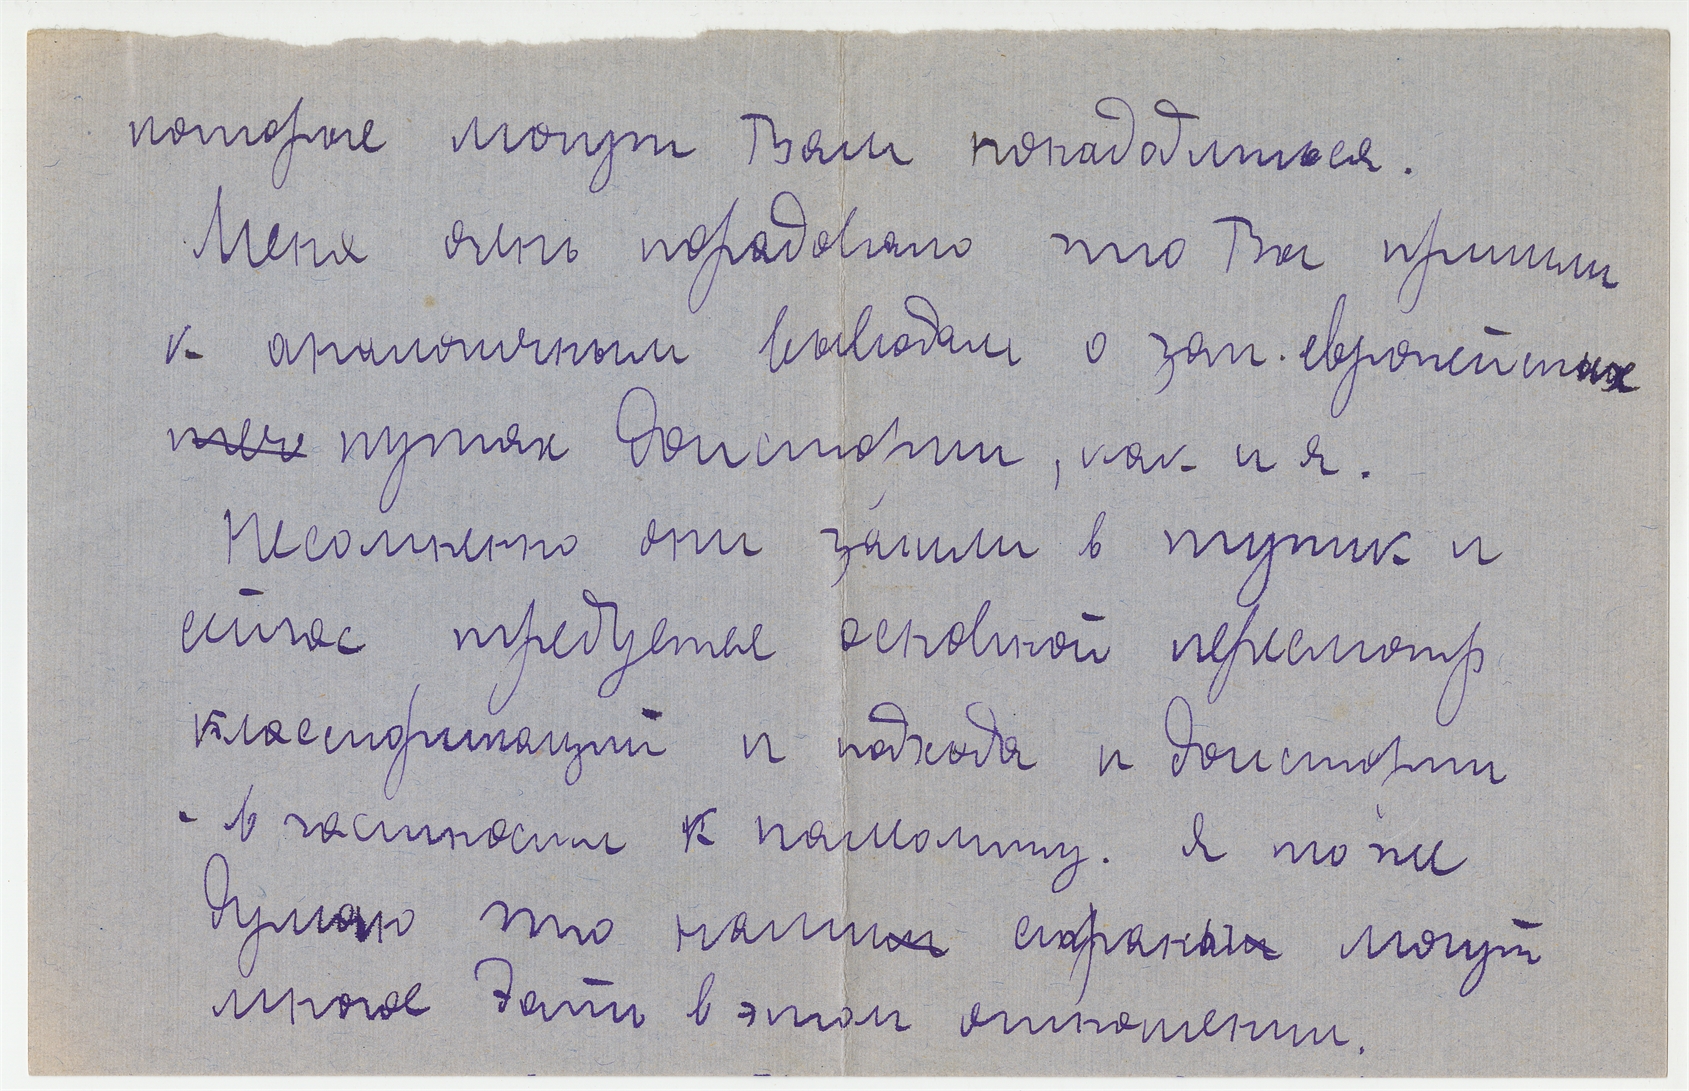 которые могут Вам понадобиться.
Меня очень порадовало что Вы пришли
к аналогичным выводам о зап. европейских
путях доистории, как и я.
Несомненно они зашли в тупик и
сейчас требуется основной пересмотр
классификаций и подхода к доистории
- в частности к палеолиту. Я тоже
думаю что наши страны могут
многое дать в этом отношении.